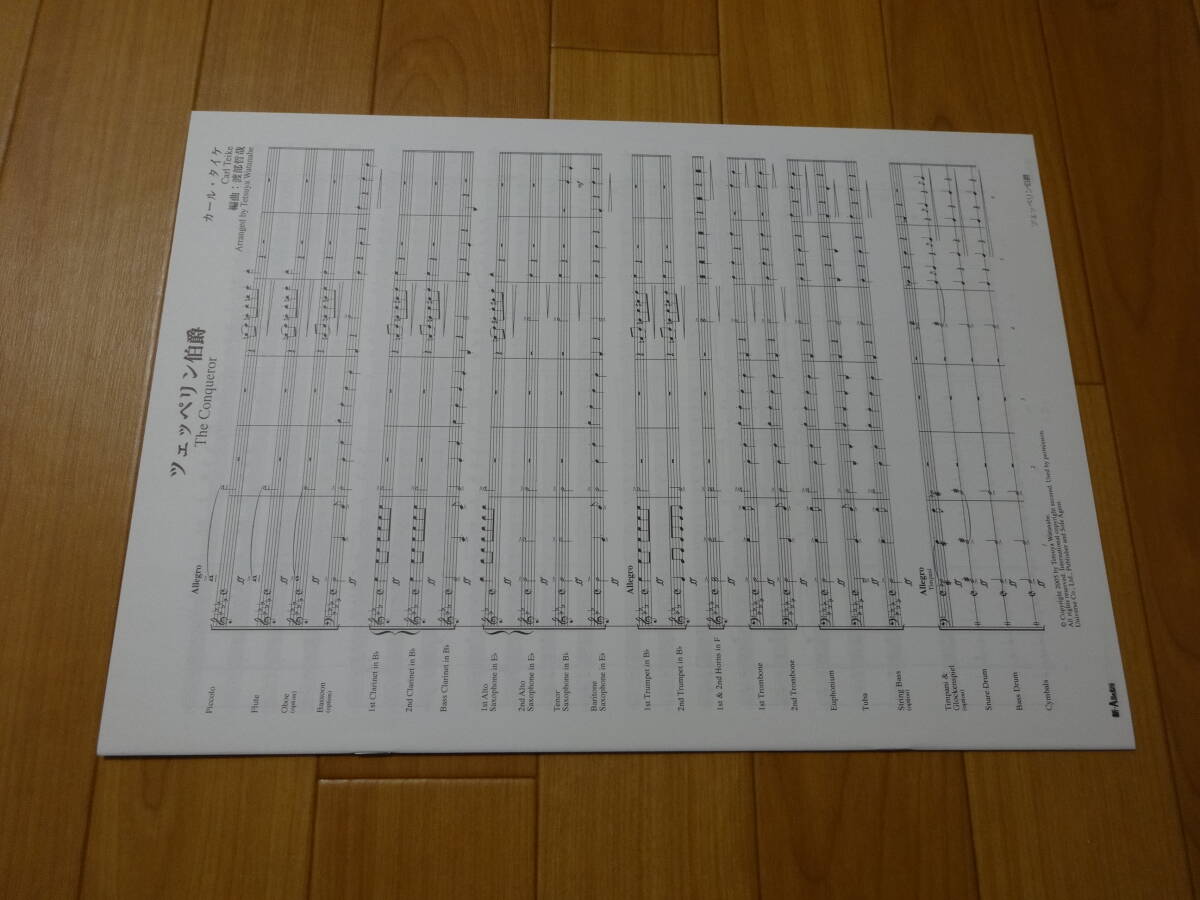 ツェッペリン伯爵
The Conqueror
カール・タイケ
Carl Teike
編曲：渡部哲哉
Arranged by Tetsuya Watanabe
Allegro
Piccolo
Flute
Oboe
(option)
Bassoon
(option)
1st Clarinet in B♭
2nd Clarinet in B♭
Bass Clarinet in B♭
1st Alto
Saxophone in E♭
2nd Alto
Saxophone in E♭
Tenor
Saxophone in B♭
Baritone
Saxophone in E♭
Allegro
1st Trumpet in B♭
2nd Trumpet in B♭
1st & 2nd Horns in F
1st Trombone
2nd Trombone
Euphonium
Tuba
String Bass
(option)
Allegro
Timpani
Timpani &
Glockenspiel
(option)
Snare Drum
Bass Drum
Cymbals
© Copyright 2005 by Tetsuya Watanabe.
All rights reserved. International copyright secured. Used by permission.
Universe Co., Ltd., Publisher and Sole Agent.
ツェッペリン伯爵